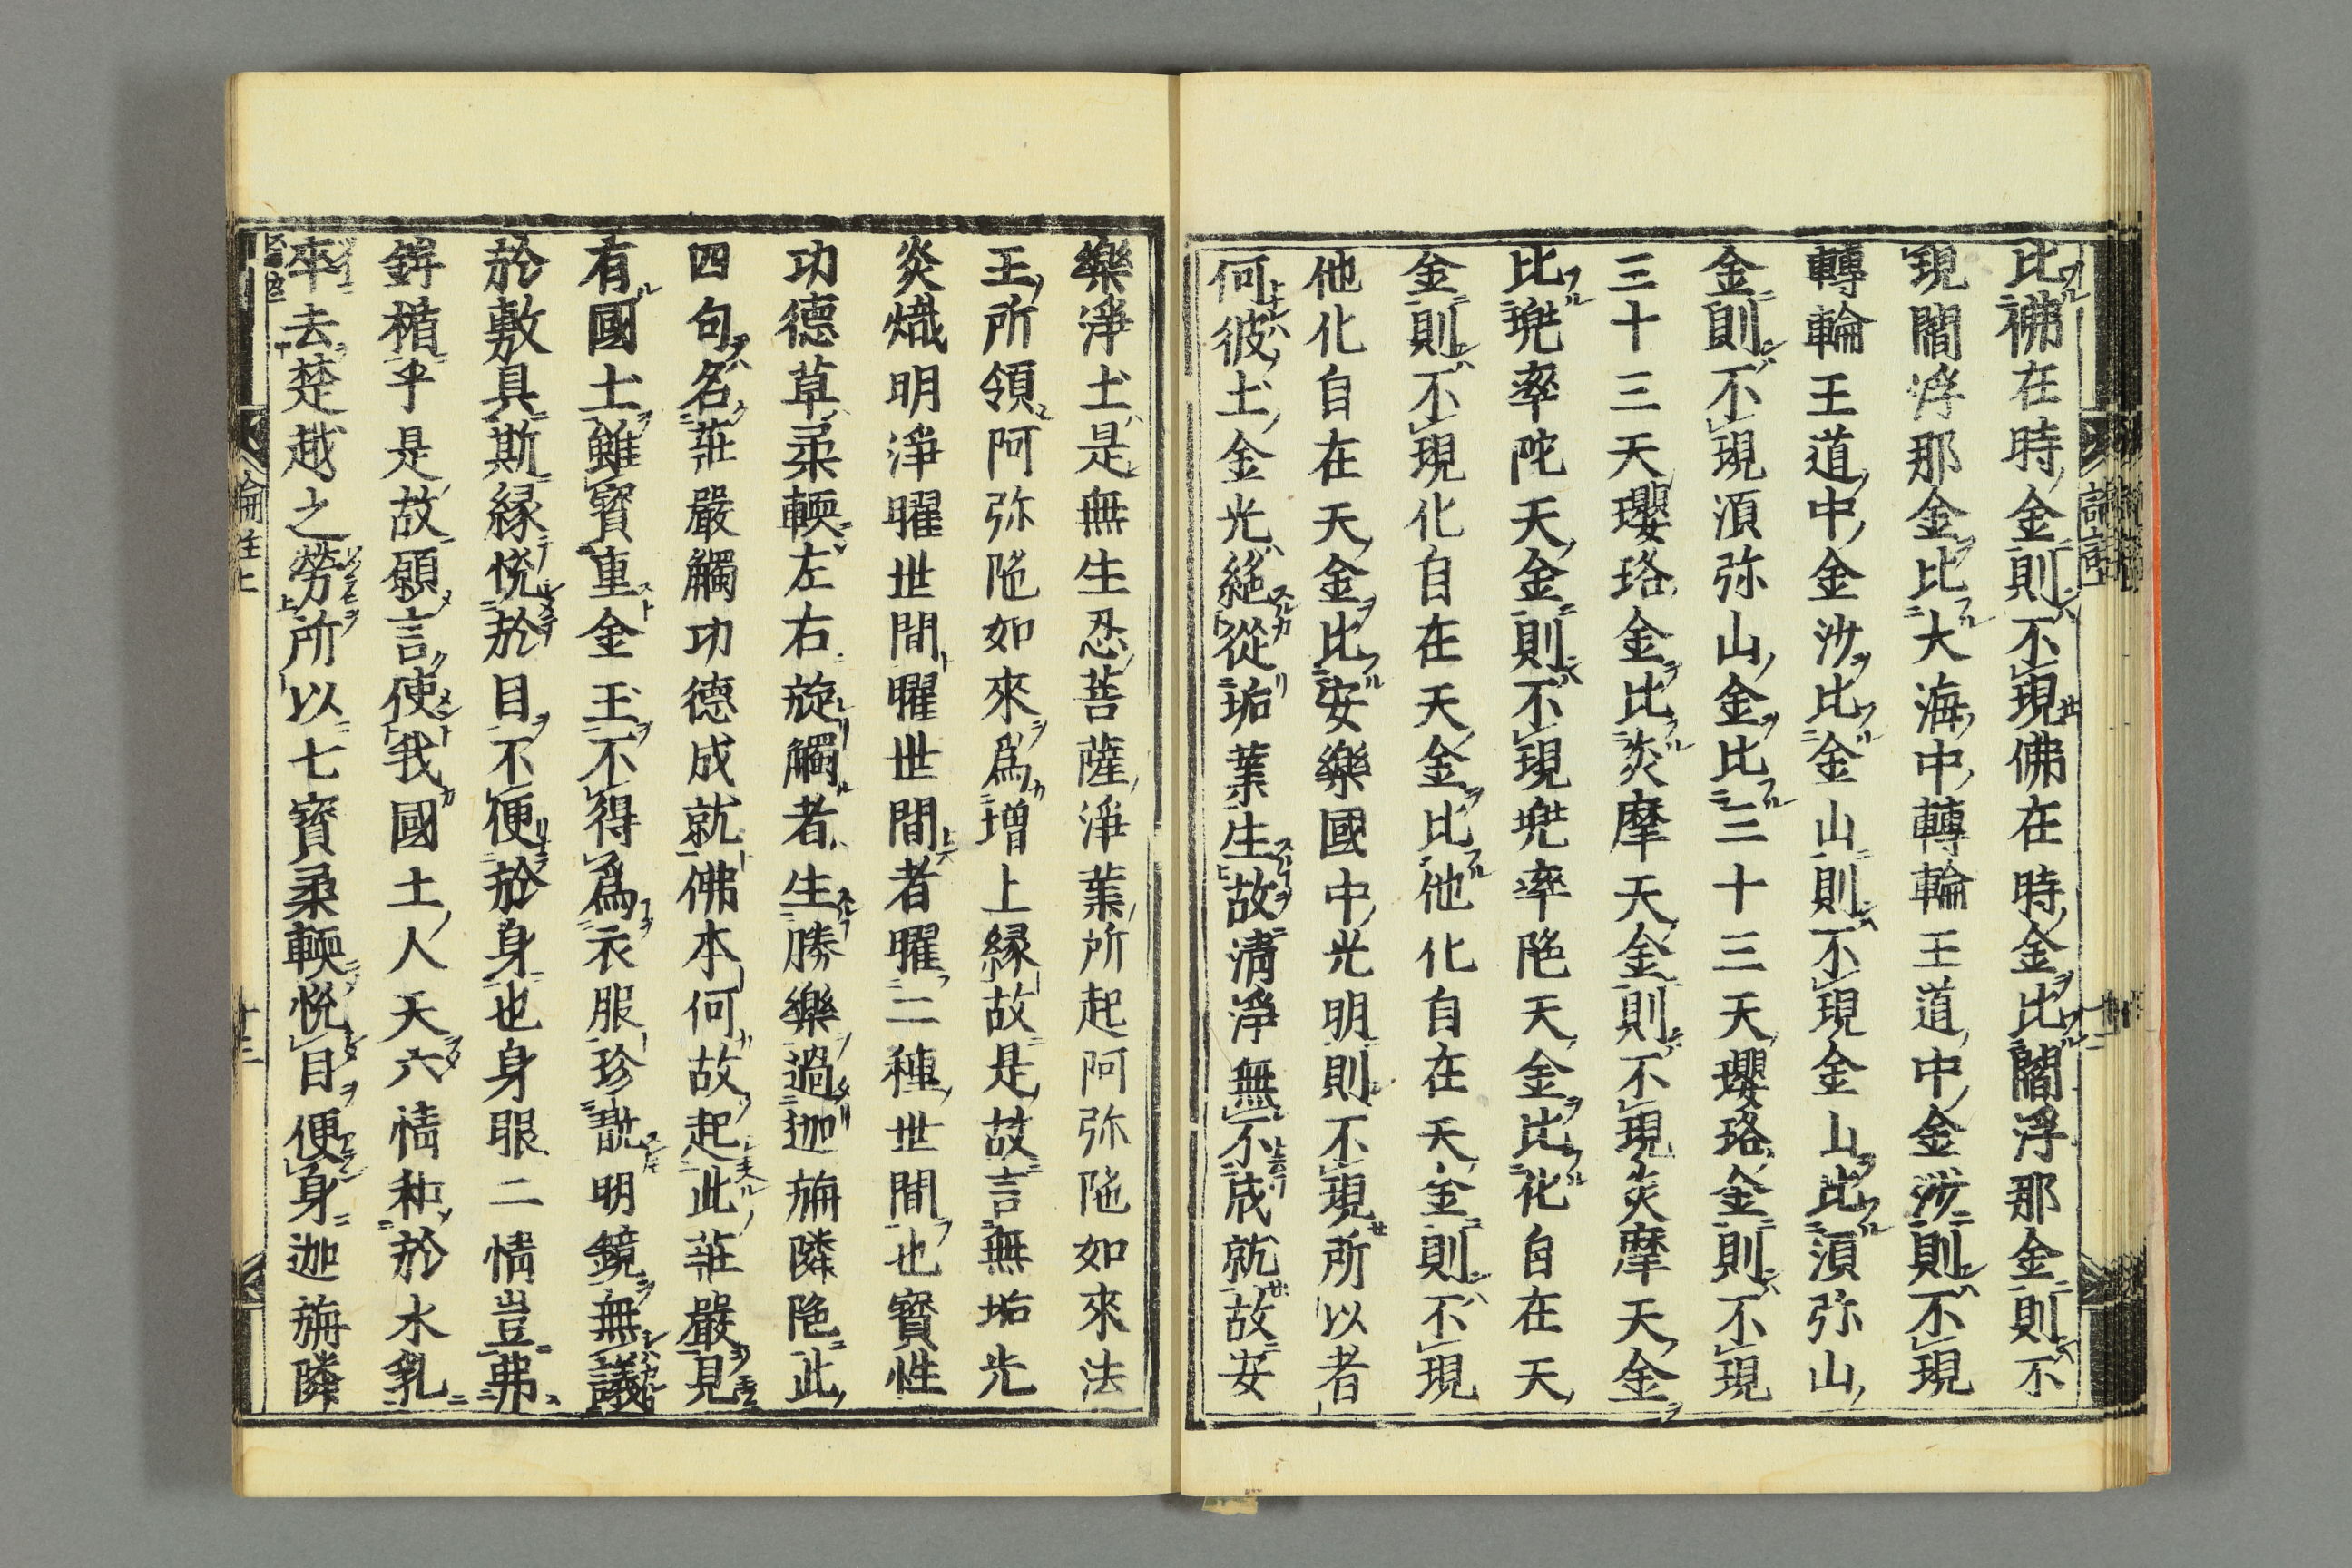 比佛在時金則不現佛在時金比閻浮那金則不
現閻浮那金比大海中轉輪王道中金沙則不現
轉輪王道中金沙比金山則不現金山比湏弥山
金則不現湏弥山金比三十三天瓔珞金則不現
三十三天瓔珞金比炎摩天金則不現炎摩天金
比兠率陀天金則不現兠率陁天金比化自在天
金則不現化自在天金比他化自在天金則不現
他化自在天金比安樂國中光明則不現所以者
何彼土金光絕從垢業生故清淨無不成就故安
樂淨土是無生忍菩薩淨業所起阿弥陁如來法
王所領阿弥陁如來爲增上緣故是故言無垢光
炎熾明淨曜世間曜世間者曜二種世間也寶性
功德草柔輭左右旋觸者生勝樂過迦旃隣陁此
四句名莊嚴觸功德成就佛本何故起此莊嚴見
有國土雖寳重金玉不得爲衣服珍翫明鏡無議
於敷具斯緣悅於目不便於身也身眼二情豈弗
鉾楯乎是故願言使我國土人天六情和於水乳
卒去楚越之勞所以七寶柔輭悅目便身迦旃隣
論註上
十三